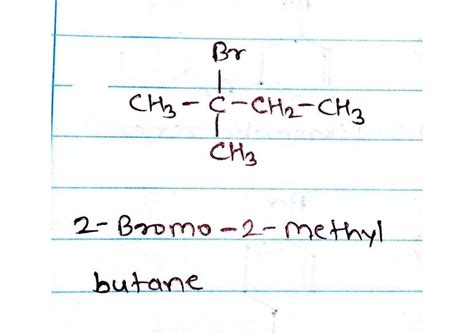 Br
CH3 - C - CH2 - CH3
CH3
2- Bromo - 2 - methyl
butane